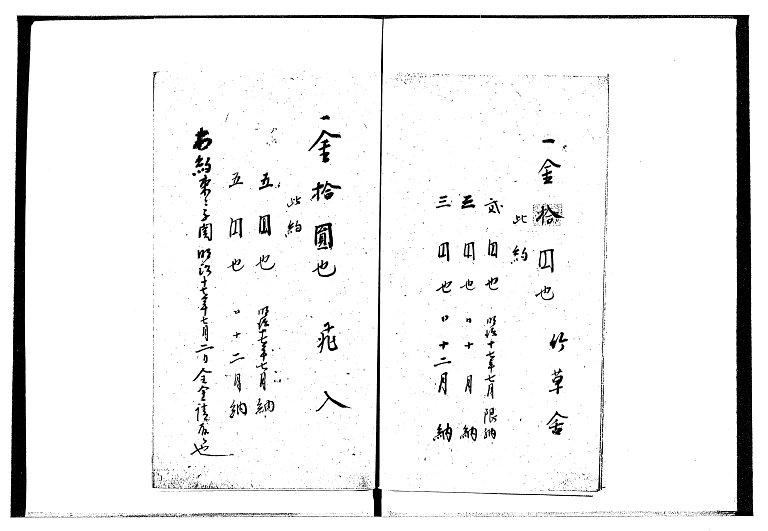 一金拾円也 竹草舎
此約
弐円也 明治十七年七月限納
三円也 〃十月納
三円也 〃十二月納
一金拾圓也 入
此約
五円也 明治十七年七月納
五円也 〃十二月納
約束 明治十七年七月二日全金請取也